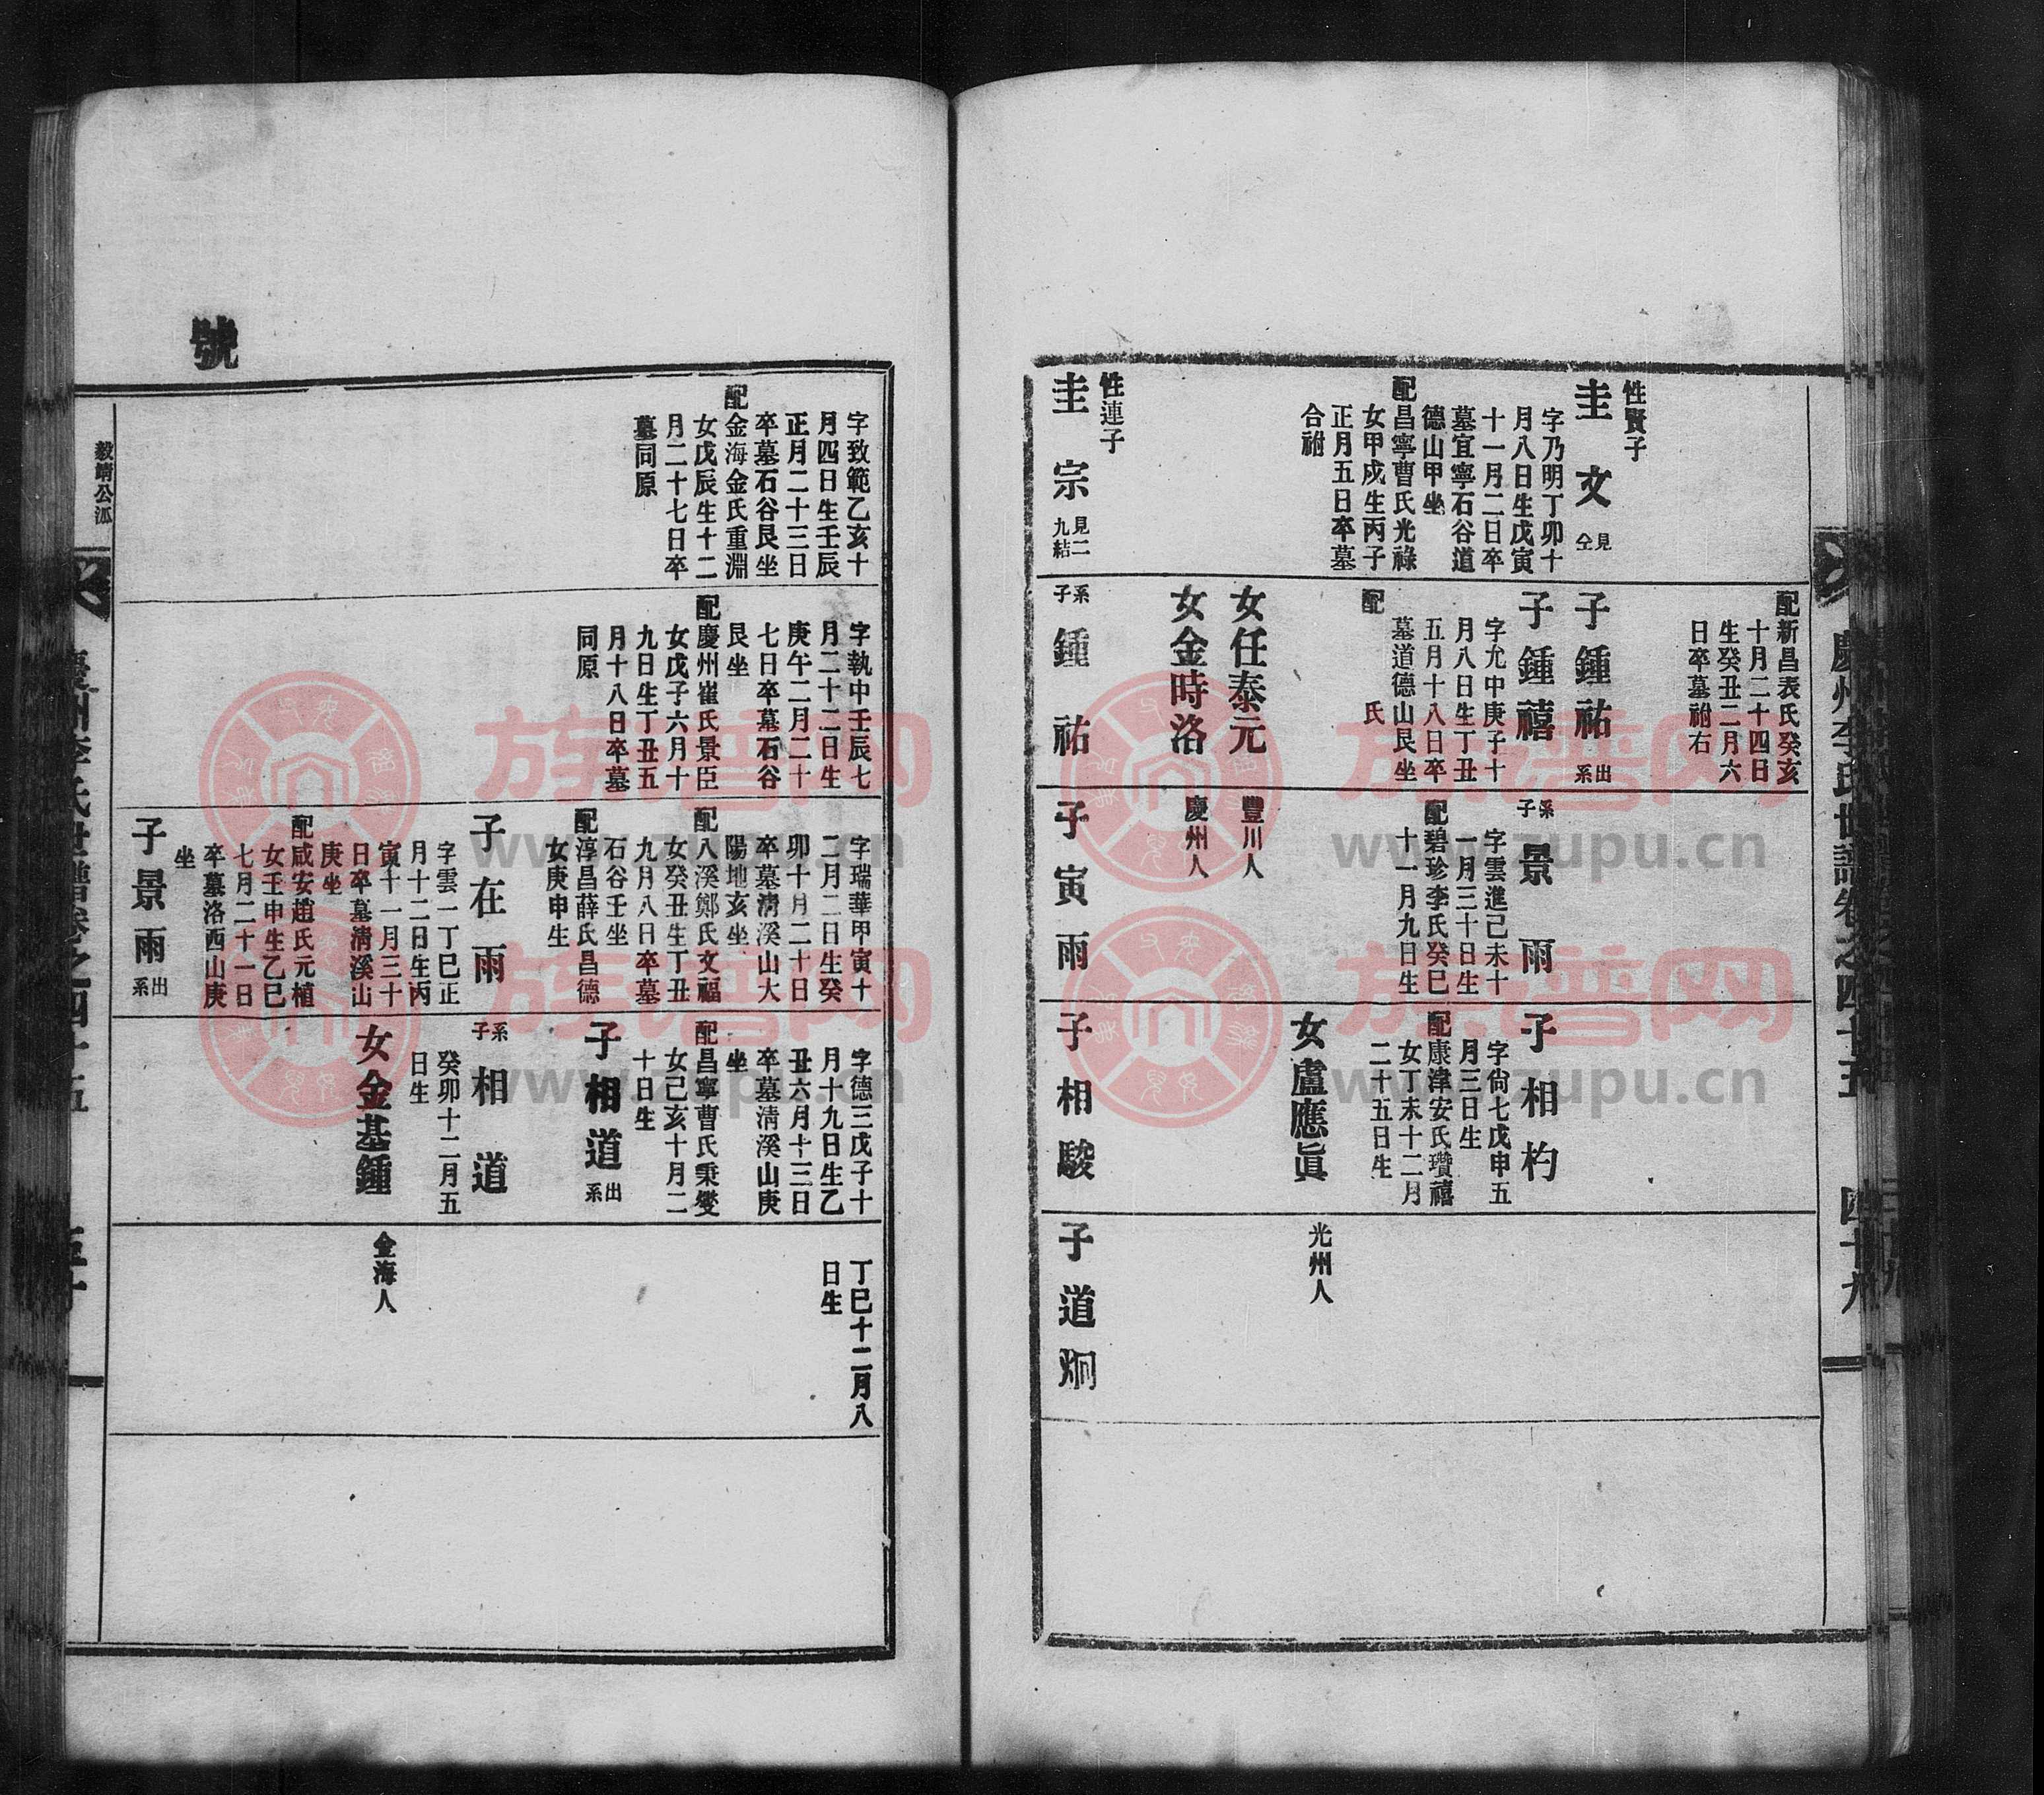 慶州李氏世譜卷之四十五 四十九
性賢子
圭文 見仝
字乃明丁卯十
月八日生戊寅
十一月二日卒
墓宜寧石谷道
德山甲坐
配昌寧曹氏光祿
女甲戌生丙子
正月五日卒墓
合祔
性連子
圭宗 見二九結
配新昌表氏癸亥
十月二十四日
生癸丑二月六
日卒墓祔右
子鍾祐 出系
子鍾禧
字允中庚子十
月八日生丁丑
五月十八日卒
墓道德山艮坐
配 氏
女任泰元
女金時洛
系子 鍾祐
系子 景雨
字雲進己未十
一月三十日生
配碧珍李氏癸巳
十一月九日生
豐川人
慶州人
子寅雨
子相杓
字尙七戊申五
月三日生
配康津安氏瓚禧
女丁未十二月
二十五日生
女盧應眞
子相駿
光州人
子道炯
號
字致範乙亥十
月四日生壬辰
正月二十三日
卒墓石谷艮坐
配金海金氏重淵
女戊辰生十二
月二十七日卒
墓同原
字執中壬辰七
月二十二日生
庚午二月二十
七日卒墓石谷
艮坐
配慶州崔氏景臣
女戊子六月十
九日生丁丑五
月十八日卒墓
同原
字瑞華甲寅十
二月二日生癸
卯十月二十日
卒墓淸溪山大
陽地亥坐
配八溪鄭氏文福
女癸丑生丁丑
九月八日卒墓
石谷壬坐
配淳昌薛氏昌德
女庚申生
子在雨
字雲一丁巳正
月十二日生丙
寅十一月三十
日卒墓淸溪山
庚坐
配咸安趙氏元植
女壬申生乙巳
七月二十一日
卒墓洛西山庚
坐
子景雨 出系
字德三戊子十
月十九日生乙
丑六月十三日
卒墓淸溪山庚
坐
配昌寧曹氏秉燮
女己亥十月二
十日生
子相道 出系
系子 相道
癸卯十二月五
日生
女金基鍾
丁巳十二月八
日生
金海人
毅靖公派
慶州李氏世譜卷之四十五 五十
族谱网
www.zupu.cn
族谱网
www.zupu.cn
族谱网
www.zupu.cn
族谱网
www.zupu.cn